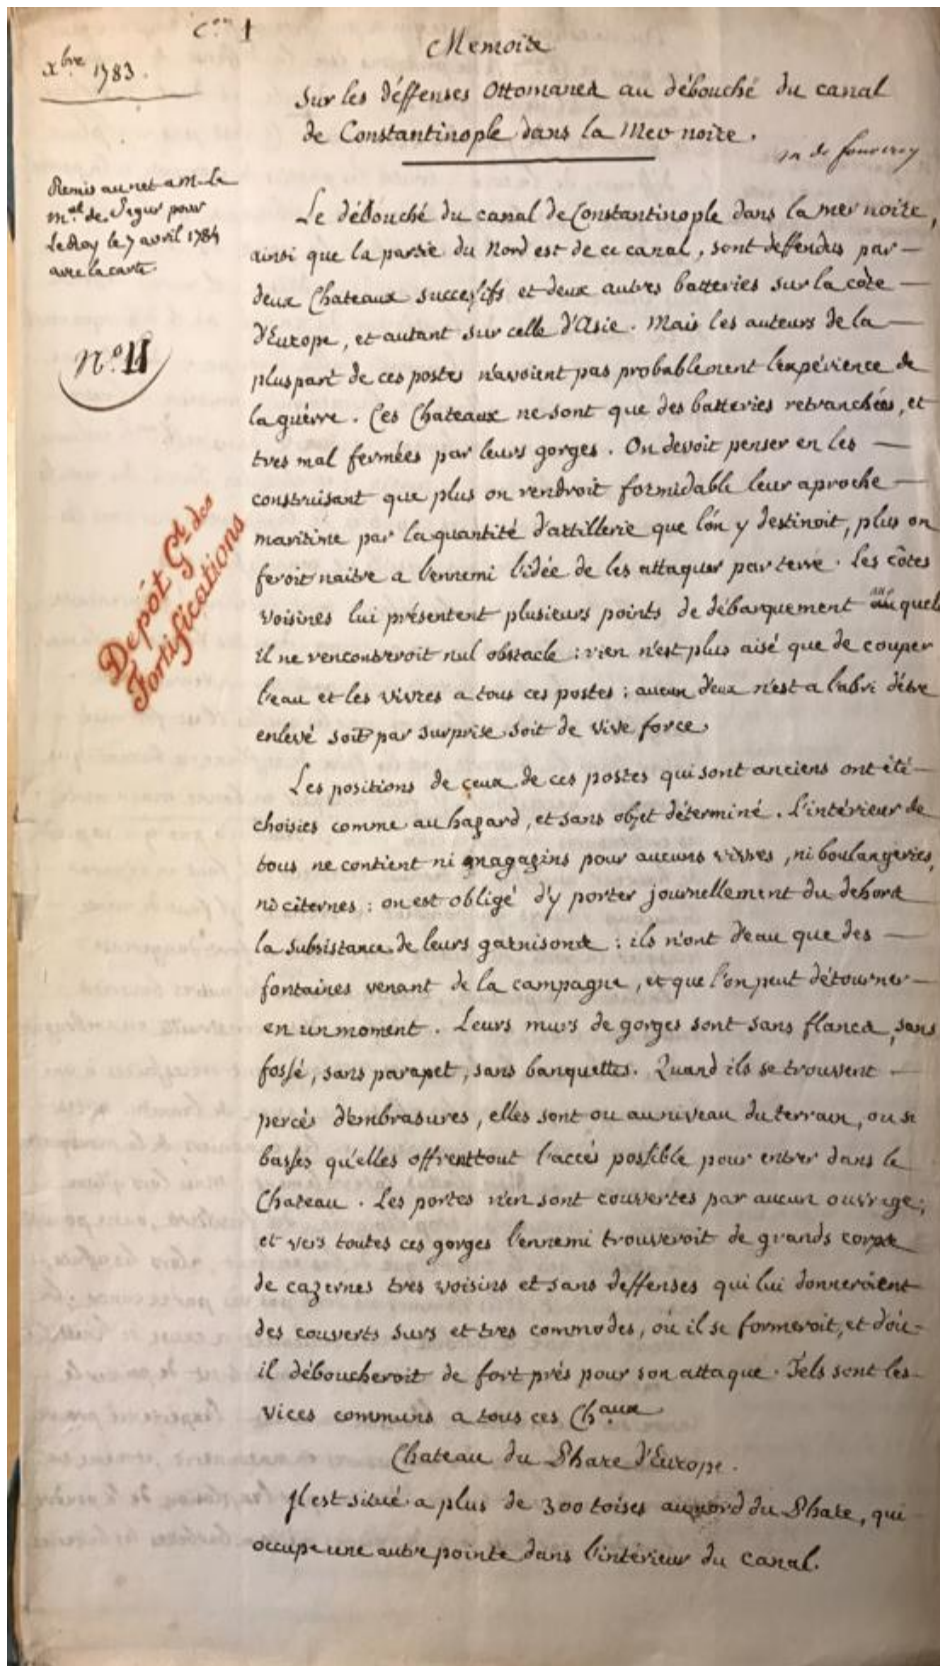 Con 1
Xbre 1783.
Memoire
Sur les déffenses Ottomanes au débouché du canal
de Constantinople dans la Mer noire.
m de
Remis au net a M. le
mal de Segur pour
Le Roy le 7 avril 1784
avec la carte.
No. 11
Depôt Gal des
Fortifications
Le débouché du canal de Constantinople dans la mer noire,
ainsi que la partie du Nord est de ce canal, sont deffendus par —
deux Chateaux successifs et deux autres batteries sur la côte —
d'Europe, et autant sur celle d'Asie. Mais les auteurs de la —
pluspart de ces postes n'avoient pas probablement l'expérience de
la guèrre. Ces Chateaux ne sont que des batteries retranchées, et
tres mal fermées par leurs gorges. On devoit penser en les —
construisant que plus on rendroit formidable leur aproche —
maritime par la quantité d'attillerie que l'ón y destinoit, plus on
feroit naitre a l'ennemi l'idée de les attaquer par terre. Les côtes
voisines lui présentent plusieurs points de débarquement auquels
il ne rencontreroit nul obstacle : rien n'est plus aisé que de couper
l'eau et les vivres a tous ces postes ; aucun d'eux n'est a l'abri d'être
enlevé soit par surprise soit de vive force.
Les positions de ceux de ces postes qui sont anciens ont été —
choisies comme au hazard, et sans objet déterminé. L'intérieur de
tous ne contient ni magazins pour aucuns vivres, ni boulangeries,
ni citernes : on est obligé d'y porter journellement du dehors
la subsistance de leurs garnisons : ils n'ont d'eau que des —
fontaines venant de la campagne, et que l'on peut détourner —
en un moment. Leurs murs de gorges sont sans flancs, sans
fossé, sans parapet, sans banquettes. Quand ils se trouvent —
percés d'embrasures, elles sont ou au niveau du terrain, ou si
basses qu'elles offrent tout l'accès possible pour entrer dans le
Chateau. Les portes n'en sont couvertes par aucun ouvrage ;
et vers toutes ces gorges l'ennemi trouveroit de grands corps
de cazernes tres voisins et sans deffenses qui lui donneroient
des couverts surs et tres commodes, où il se formeroit, et d'où —
il déboucheroit de fort près pour son attaque. Tels sont les —
vices communs a tous ces Chaux
Chateau du Phare d'Europe.
Il est situé a plus de 300 toises au nord du Phare, qui
occupe une autre pointe dans l'intérieur du canal.